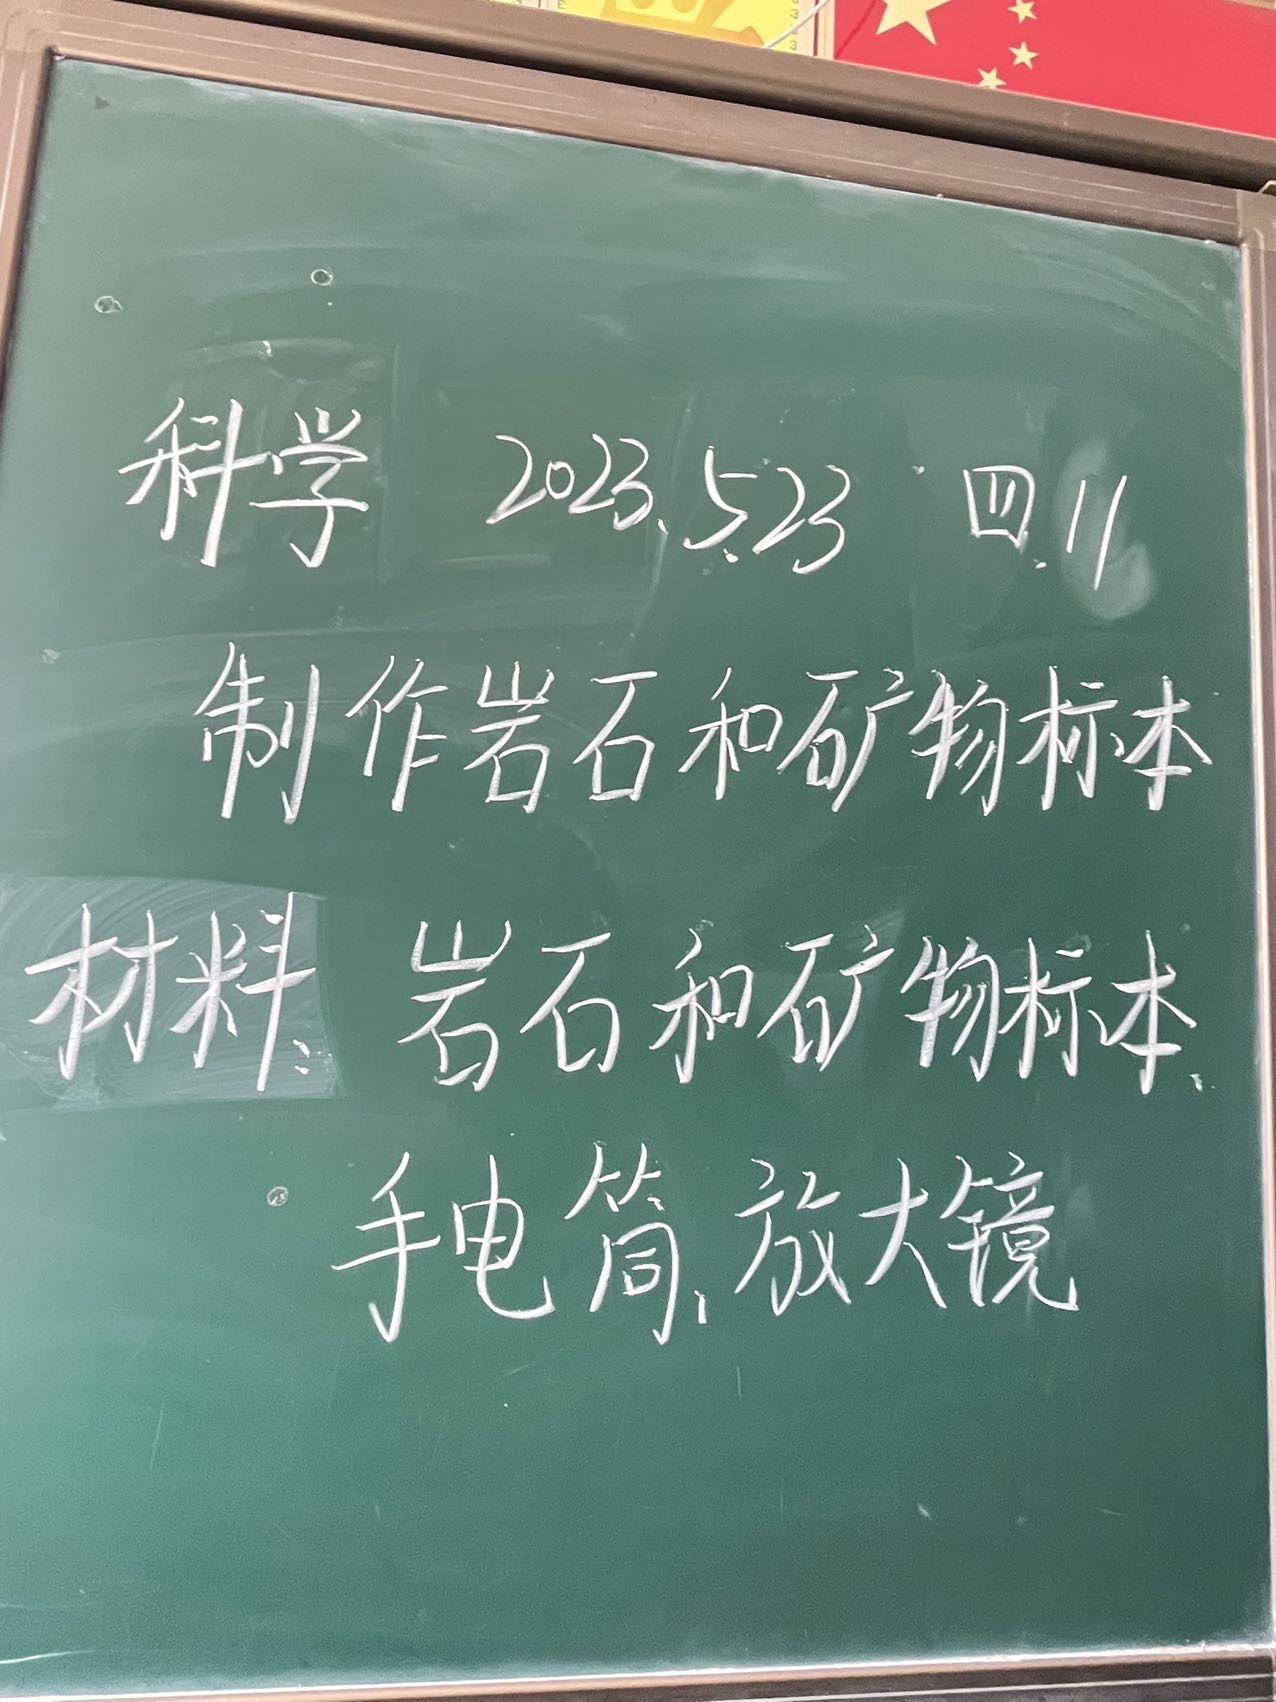 科学 2023.5.23 四.11
制作岩石和矿物标本
材料: 岩石和矿物标本、
手电筒、放大镜